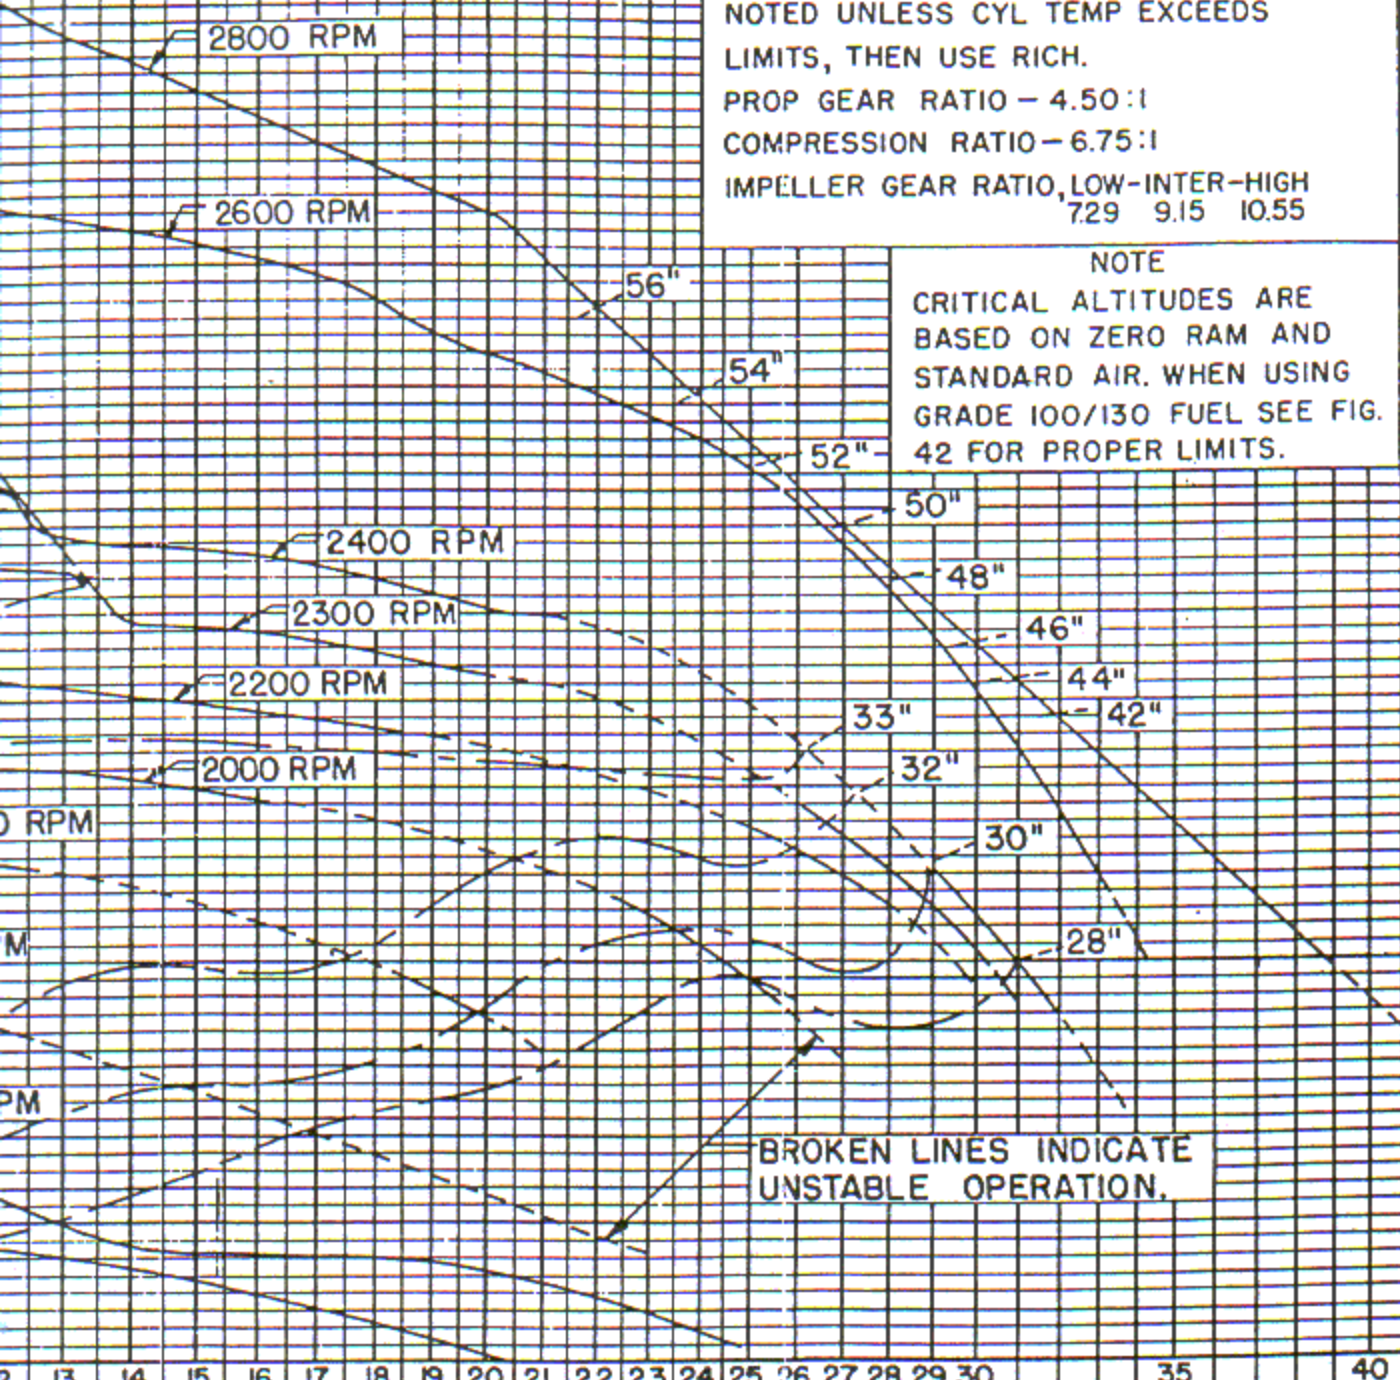 NOTED UNLESS CYL TEMP EXCEEDS
LIMITS, THEN USE RICH.
PROP GEAR RATIO – 4.50:1
COMPRESSION RATIO – 6.75:1
IMPELLER GEAR RATIO, LOW-INTER-HIGH
7.29 9.15 10.55
NOTE
CRITICAL ALTITUDES ARE
BASED ON ZERO RAM AND
STANDARD AIR. WHEN USING
GRADE 100/130 FUEL SEE FIG.
42 FOR PROPER LIMITS.
2800 RPM
2600 RPM
56"
54"
52"
50"
2400 RPM
48"
2300 RPM
46"
2200 RPM
44"
42"
33"
2000 RPM
32"
0 RPM
30"
M
28"
PM
BROKEN LINES INDICATE
UNSTABLE OPERATION.
2 13 14 15 16 17 18 19 20 21 22 23 24 25 26 27 28 29 30 35 40